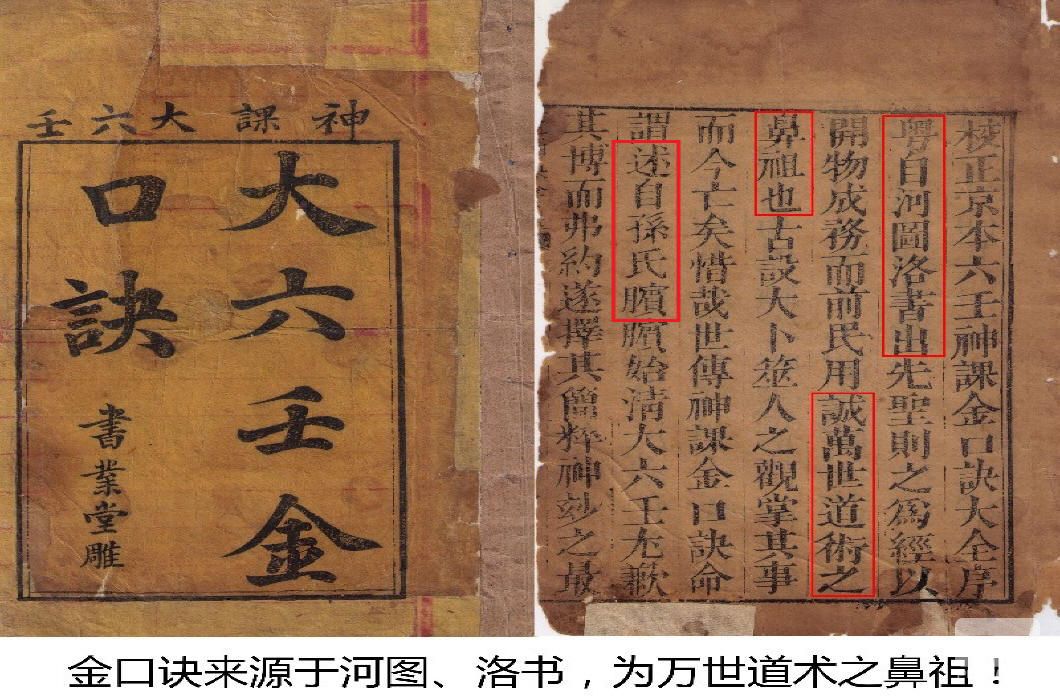 神課大六壬
大六壬金
口訣
書業堂雕
校正京本六壬神課金口訣大全序
粵自河圖洛書出先聖則之為經以
開物成務而前民用誠萬世道術之
鼻祖也古設大卜筮人之觀掌其事
而今亡矣惜哉世傳神課金口訣命
謂述自孫氏臏臏始清大六壬尤歎
其博而弗約遂擇其簡粹神妙之最
金口诀来源于河图、洛书，为万世道术之鼻祖！